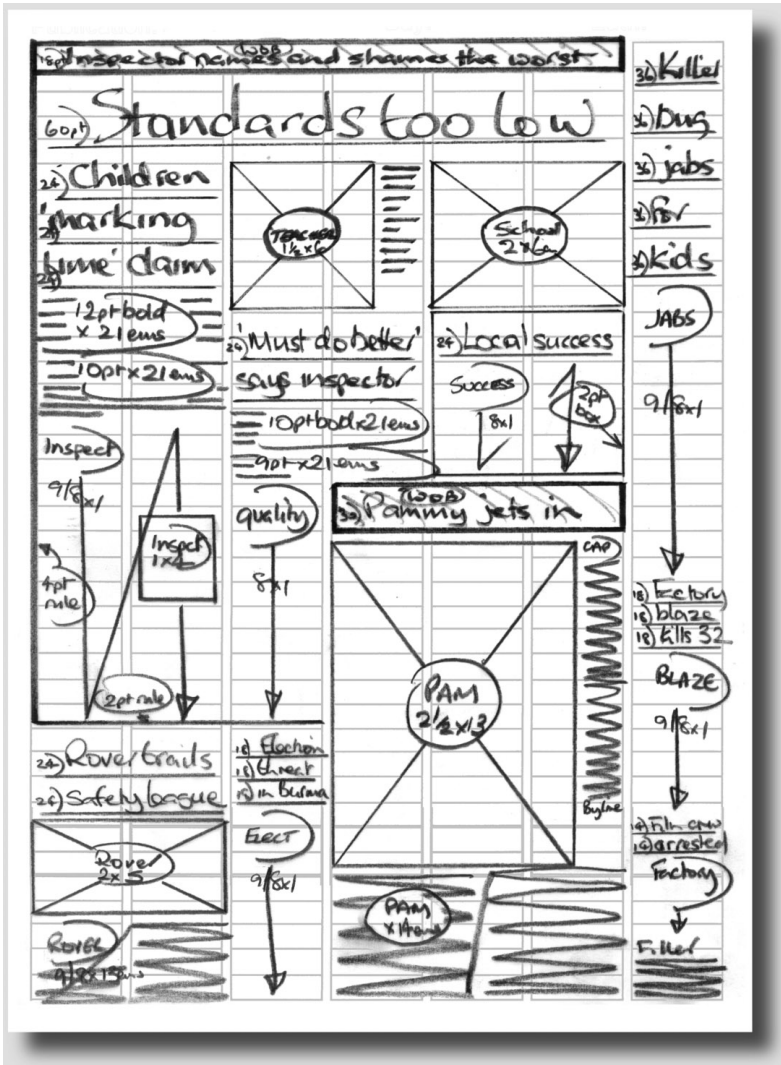 18pt) Inspector names and shames the worst
WOB
60pt) Standards too low
24) Children
24) 'marking
24) time' claim
12pt bold
x 21ems
10pt x 21ems
Inspect
9/8x1
4pt
rule
Inspect
1x4
2pt rule
TEACHER
1½ x 6
School
2 x 6cm
24) 'Must do better'
says inspector
10pt bold x 21ems
9pt x 21ems
quality
8x1
24) Local success
Success
8x1
2pt
box
WOB
30) Pammy jets in
PAM
2½ x 13
CAP
Byline
PAM
x 14ems
24) Rover trails
24) Safety league
Rover
2 x 5
ROVER
9/8 x 13ems
18) Election
18) threat
18) in Burma
ELECT
9/8x1
36) Killer
36) bug
36) jabs
36) for
36) kids
JABS
9/8x1
18) Factory
18) blaze
18) kills 32
BLAZE
9/8x1
14) Film crew
14) arrested
Factory
Filler